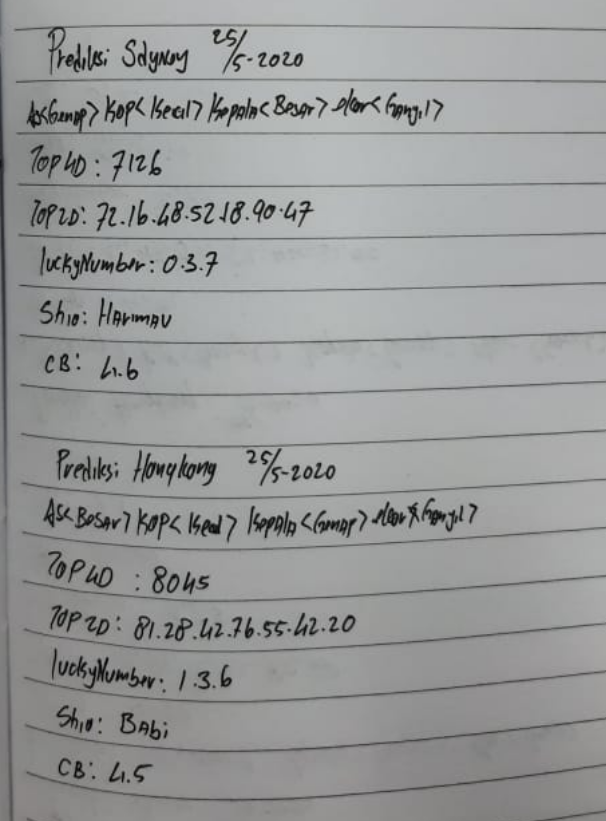 Prediksi Sdyney 25/5-2020
As<Genap> Kop<Kecil> Kepala<Besar> ekor<Ganjil>
Top4D : 7126
Top2D: 72.16.48.52.18.90.47
luckyNumber: 0.3.7
Shio: Harimau
CB: 4.6
Prediksi Hongkong 25/5-2020
As<Besar> Kop<Kecil> Kepala<Genap> ekor<Ganjil>
Top4D : 8045
Top2D: 81.28.42.76.55.42.20
luckyNumber: 1.3.6
Shio: Babi
CB: 4.5